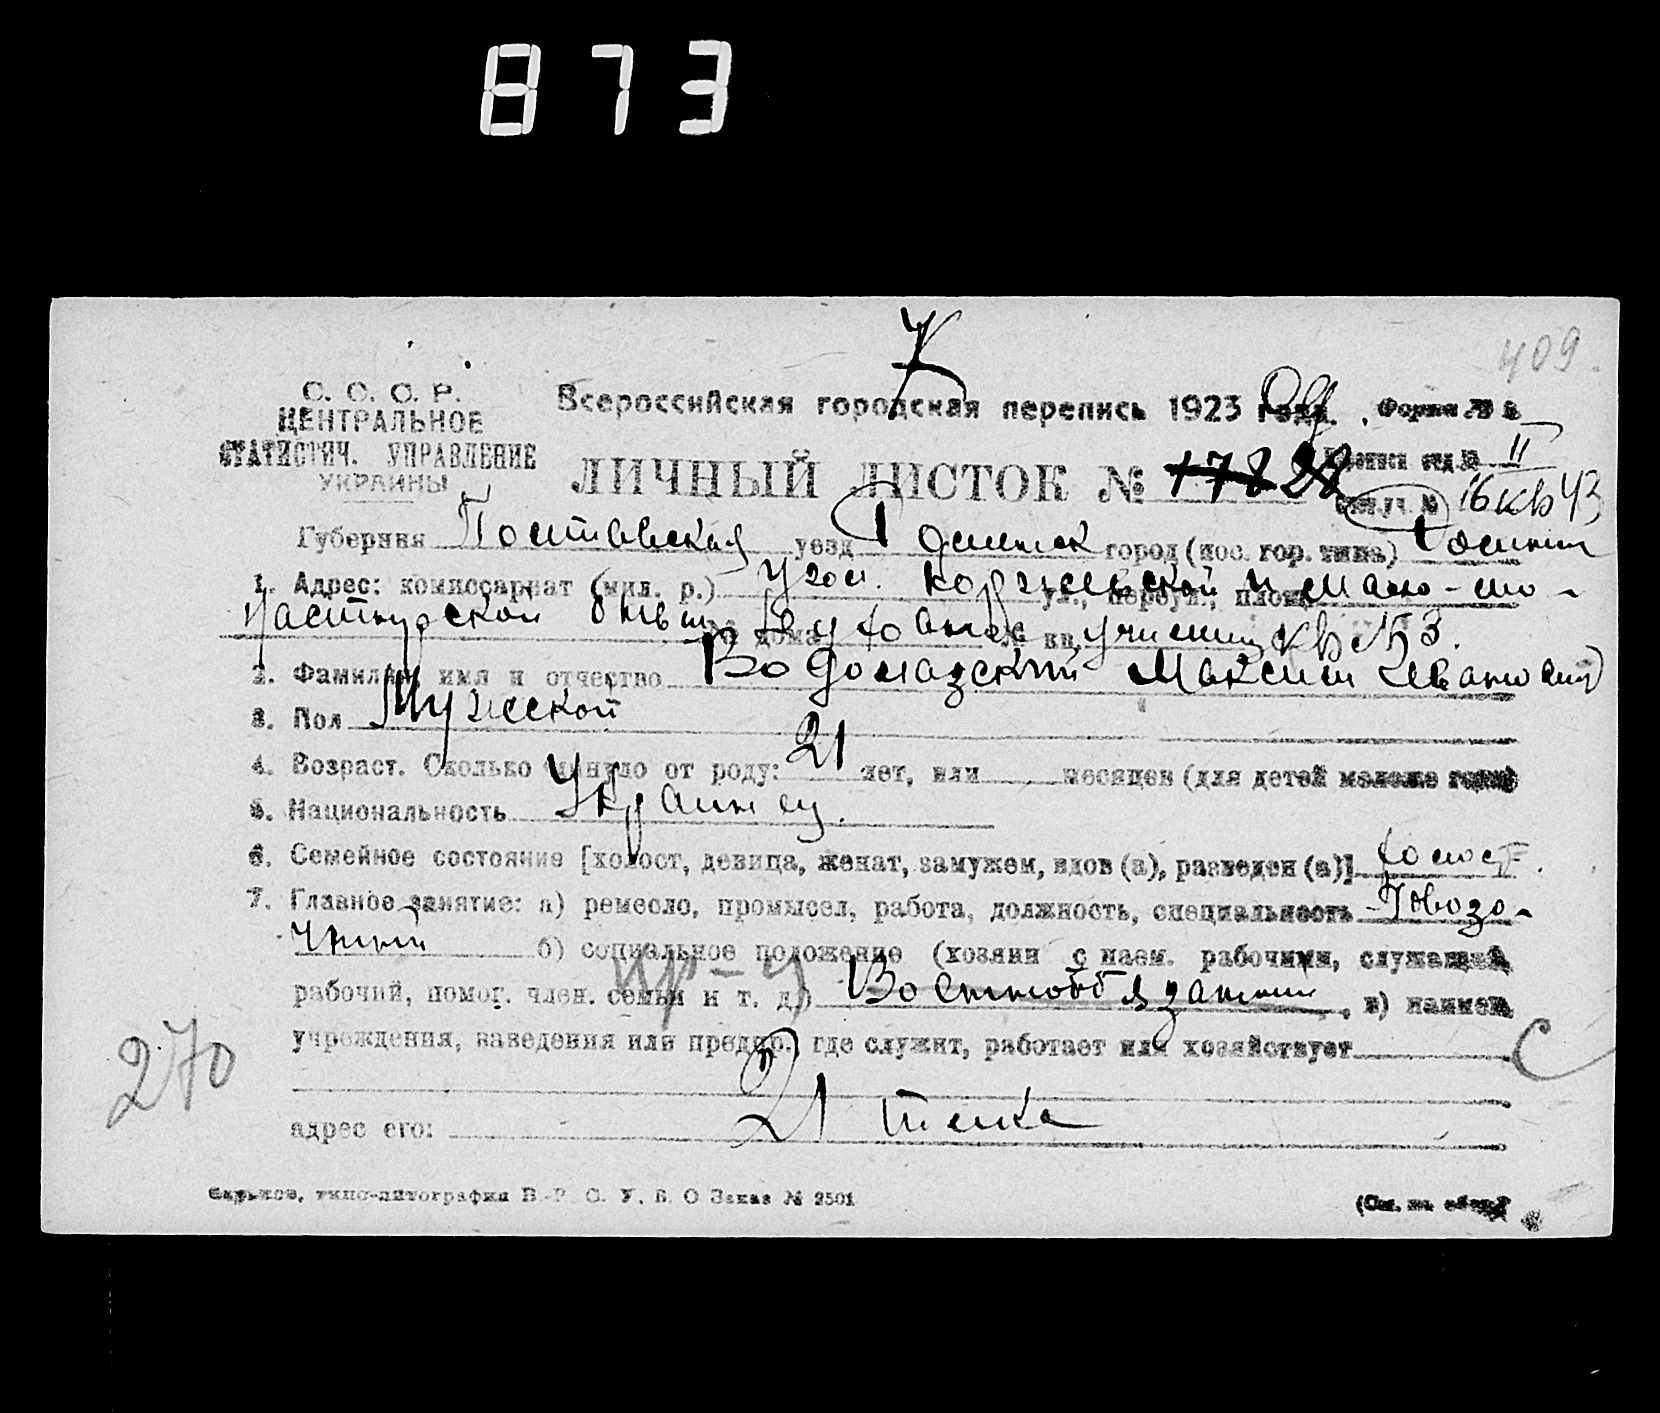 873
409.
С. С. С. Р.
ЦЕНТРАЛЬНОЕ
СТАТИСТИЧ. УПРАВЛЕНИЕ
УКРАИНЫ
Всероссийская городская перепись 1923 года. Форма №
ЛИЧНЫЙ ЛИСТОК №
отд. № 11
уч. № 16 кв 43
Губерния Полтавская уезд город (пос. гор. типа)
1. Адрес: комиссариат (мил. р.) угол. ул., переул., площ. и мало-мо-
настырской дома № кв. кв № 3.
2. Фамилия, имя и отчество Максим Иванович
3. Пол Мужской
4. Возраст. Сколько минуло от роду: 21 лет, или месяцев (для детей моложе года)
5. Национальность Украинец.
6. Семейное состояние [холост, девица, женат, замужем, вдов (а), разведен (а)] холост
7. Главное занятие: а) ремесло, промысел, работа, должность, специальность Повозо-
чный б) социальное положение (хозяин с наем. рабочими, служащий,
рабочий, помог. член. семьи и т. д.) Военнообязанный, в) наимен.
учреждения, заведения или предпр., где служит, работает или хозяйствует
270
С
адрес его: 21
Харьков, типо-литография В. Р. С. У. В. О Заказ № 2501
(См. на обор.)